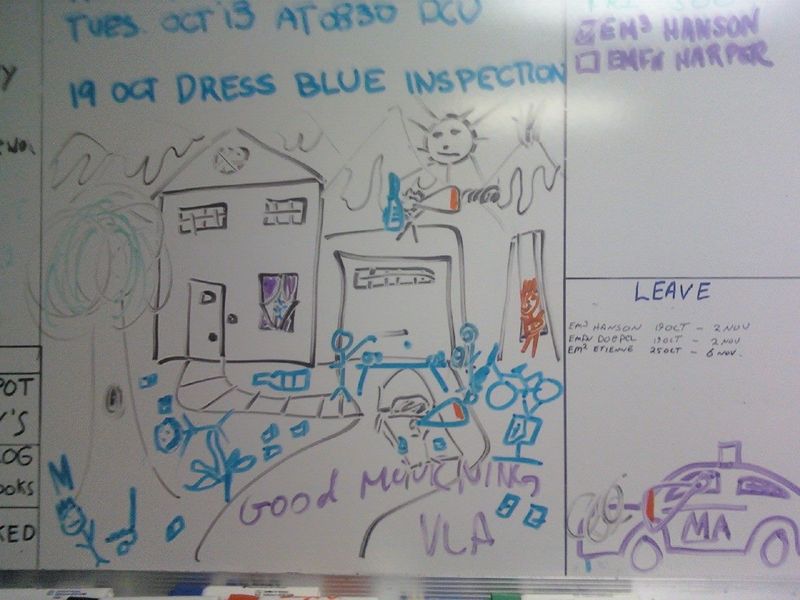 TUES. OCT 13 AT 0830 DCU
19 OCT DRESS BLUE INSPECTION
EM3 HANSON
EMFN HARPER
LEAVE
EM3 HANSON 19OCT - 2NOV
EMFN DOEPEL 19OCT - 2NOV
EM2 ETIENNE 25OCT - 6NOV.
POT
Y'S
LOG
OOKS
KED
GOOD MOURNING
VLA
MA